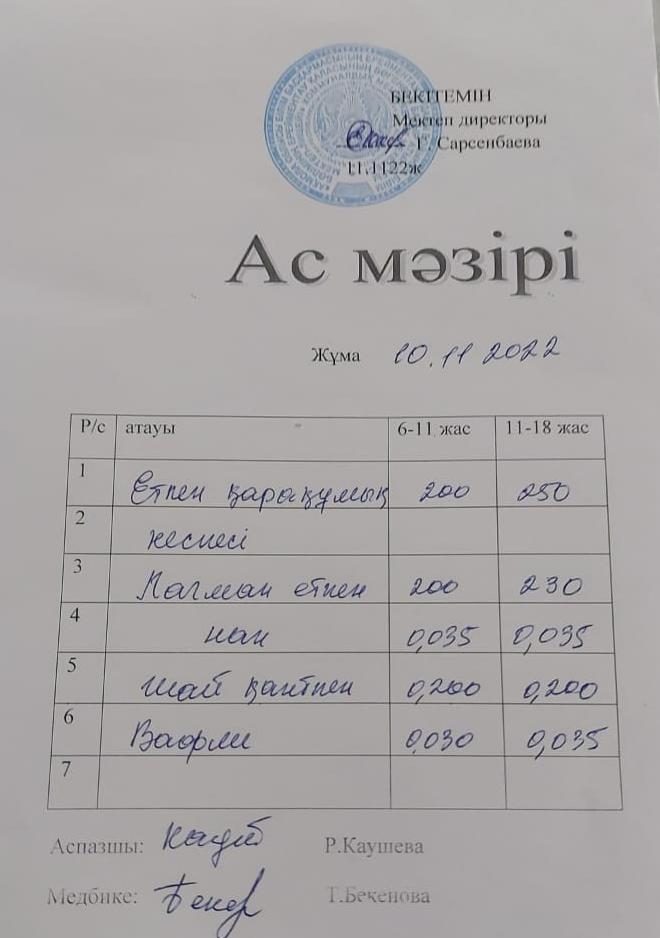 БЕКІТЕМІН
Мектеп директоры
Г. Сарсенбаева
11.1122ж
Ас мәзірі
Жұма 10.11 2022
Р/с атауы 6-11 жас 11-18 жас
1 Етпен қарақұмық 200 250
2 кеспесі
3 Лагман етпен 200 230
4 нан 0,035 0,035
5 шай қантпен 0,200 0,200
6 Вафли 0,030 0,035
7
Аспазшы: Р.Каушева
Медбике: Т.Бекенова